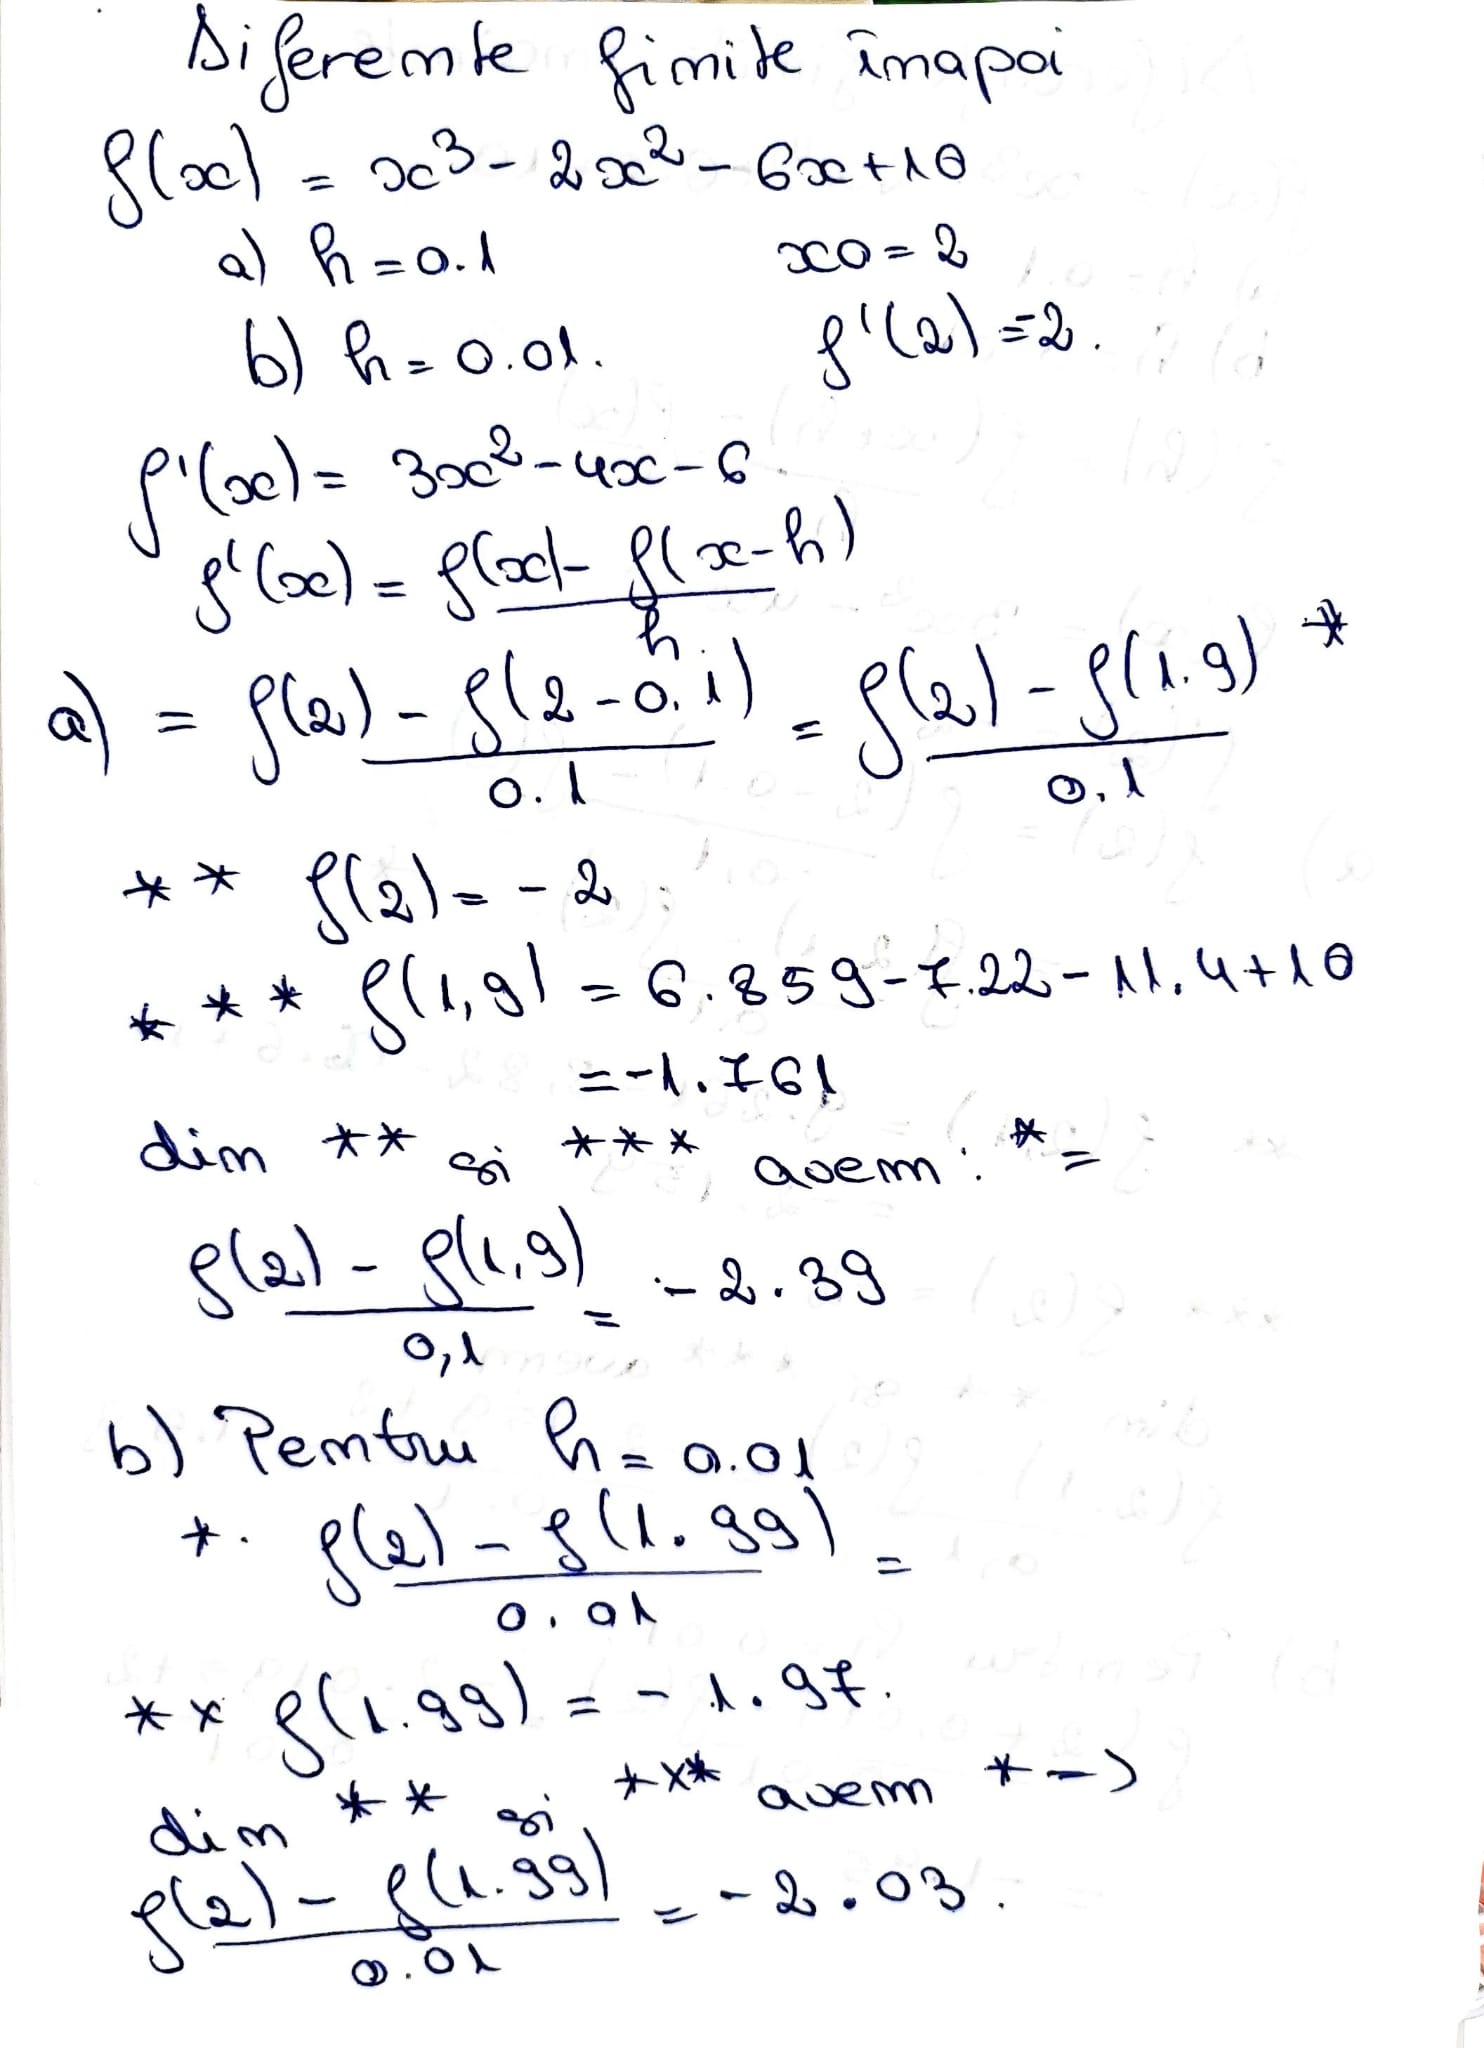 Diferente finite înapoi
f(x) = x³ - 2x² - 6x + 10
a) h = 0.1 x0 = 2
b) h = 0.01. f'(2) = -2.
f'(x) = 3x² - 4x - 6
f'(x) = f(x) - f(x-h)
h
a) = f(2) - f(2-0.1) = f(2) - f(1.9) *
0.1 0.1
** f(2) = -2
*** f(1,9) = 6.859 - 7.22 - 11.4 + 10
= -1.761
din ** si *** avem: * =
f(2) - f(1,9) = -2.39
0,1
b) Pentru h = 0.01
*. f(2) - f(1.99) =
0.01
** f(1.99) = -1.97.
din ** si *** avem * ->
f(2) - f(1.99) = -2.03.
0.01